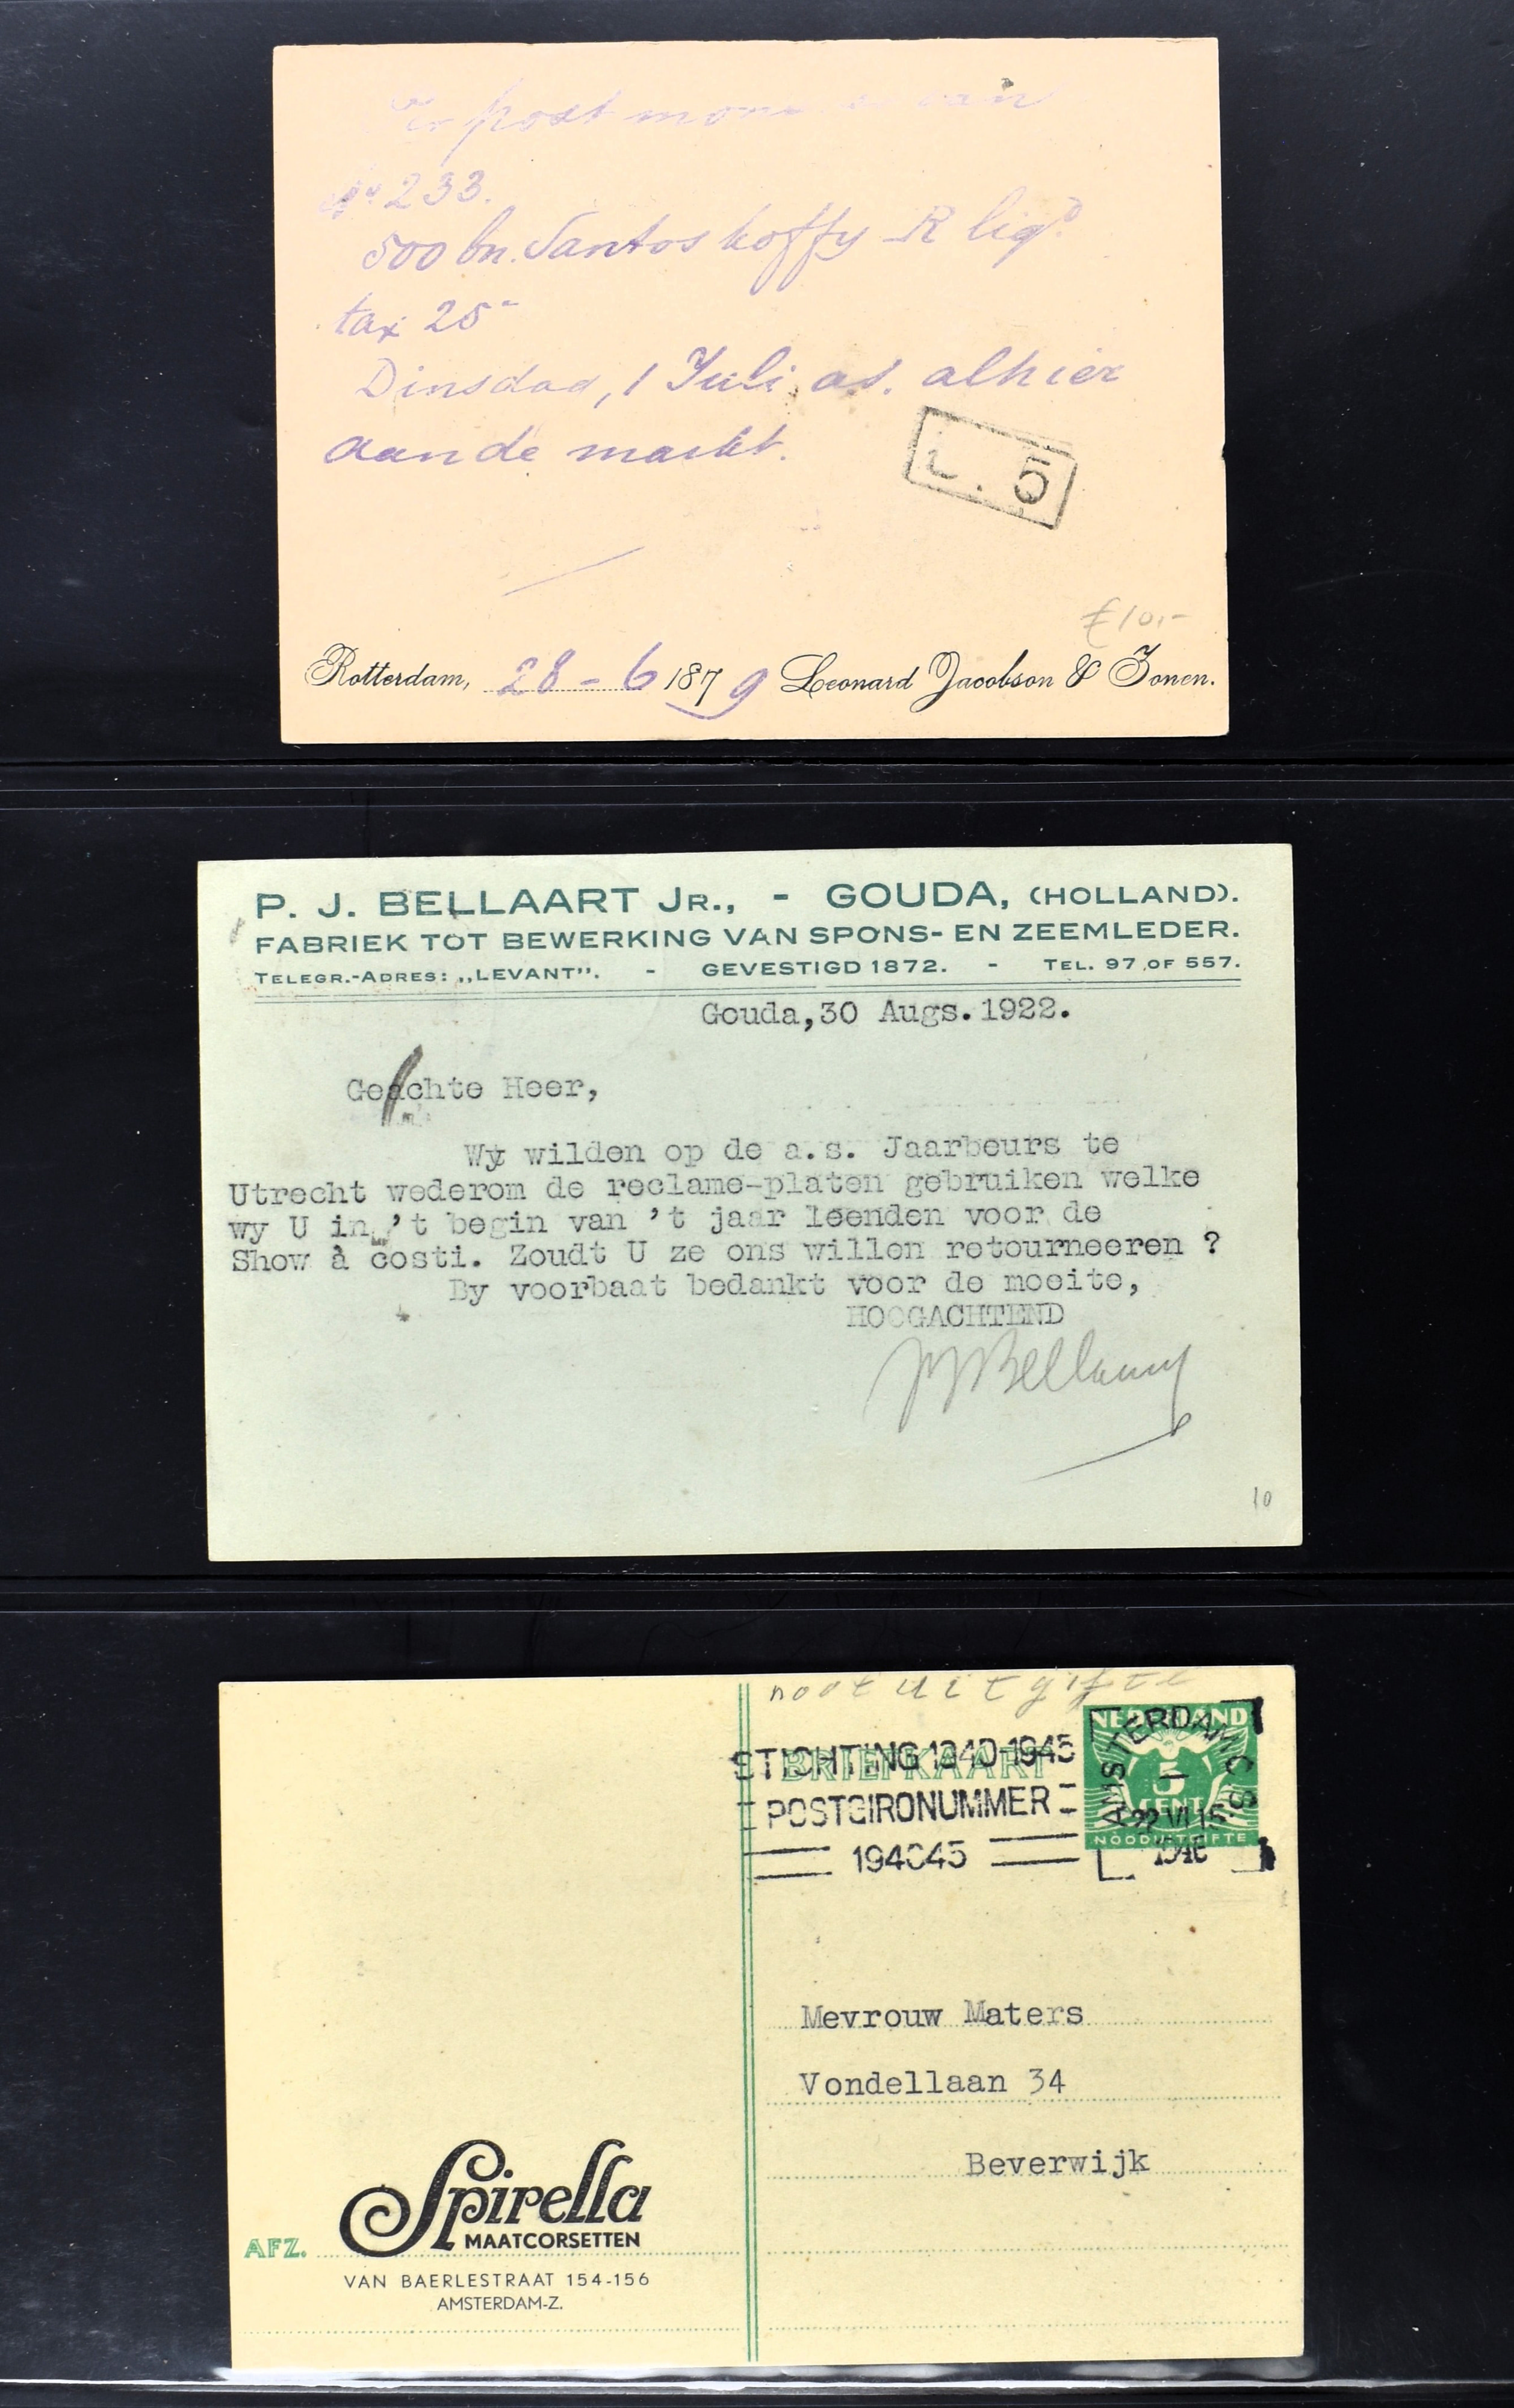 post
No 233.
500 bn. Santos koffy R liqd
tax 25-
Dinsdag, 1 Juli as. alhier
aan de markt.
L. 5
€10,-
Rotterdam, 28-6 1879 Leonard Jacobson & Zonen.
P. J. BELLAART JR., - GOUDA, (HOLLAND).
FABRIEK TOT BEWERKING VAN SPONS- EN ZEEMLEDER.
TELEGR.-ADRES: „LEVANT". - GEVESTIGD 1872. - TEL. 97 OF 557.
Gouda,30 Augs.1922.
Geachte Heer,
Wy wilden op de a.s. Jaarbeurs te
Utrecht wederom de reclame-platen gebruiken welke
wy U in 't begin van 't jaar leenden voor de
Show à costi. Zoudt U ze ons willen retourneeren ?
By voorbaat bedankt voor de moeite,
HOOGACHTEND
PJBellaart
10
nootuitgifte
NEDERLAND
5
CENT
NOODUITGIFTE
BRIEFKAART
STICHTING 1940-1945
POSTGIRONUMMER
194045
AMSTERDAM C.S.
1
22 VI 15
1946
Mevrouw Maters
Vondellaan 34
Beverwijk
Spirella
MAATCORSETTEN
AFZ.
VAN BAERLESTRAAT 154-156
AMSTERDAM-Z.